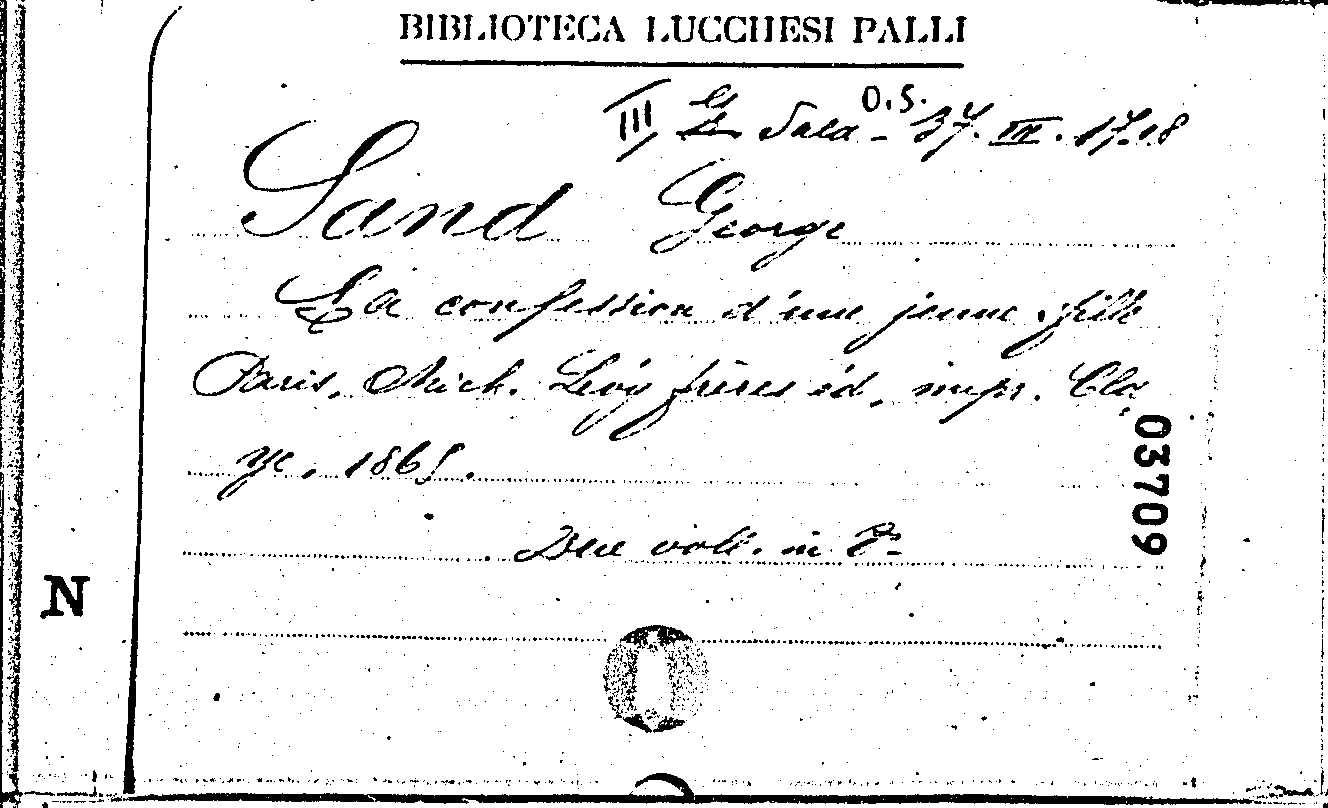 BIBLIOTECA LUCCHESI PALLI
O.S.
III, Sala - 37. III. 17.18
Sand George
La confession d'une jeune fille
Paris, Mich. Lévy frères éd, impr. Cla
ye, 1865.
Due voll. in 8º
03709
N